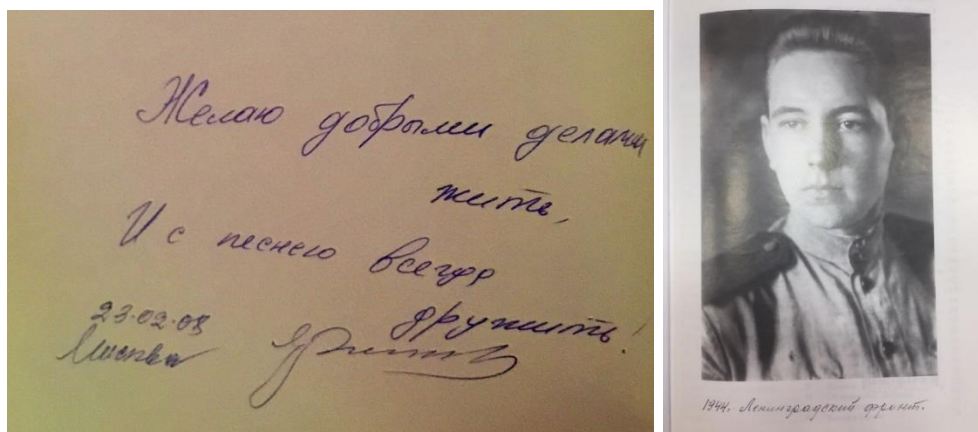 Желаю добрыми делами
жить,
И с песнею всегда
дружить!
23.02.08
Москва
1944. Ленинградский фронт.